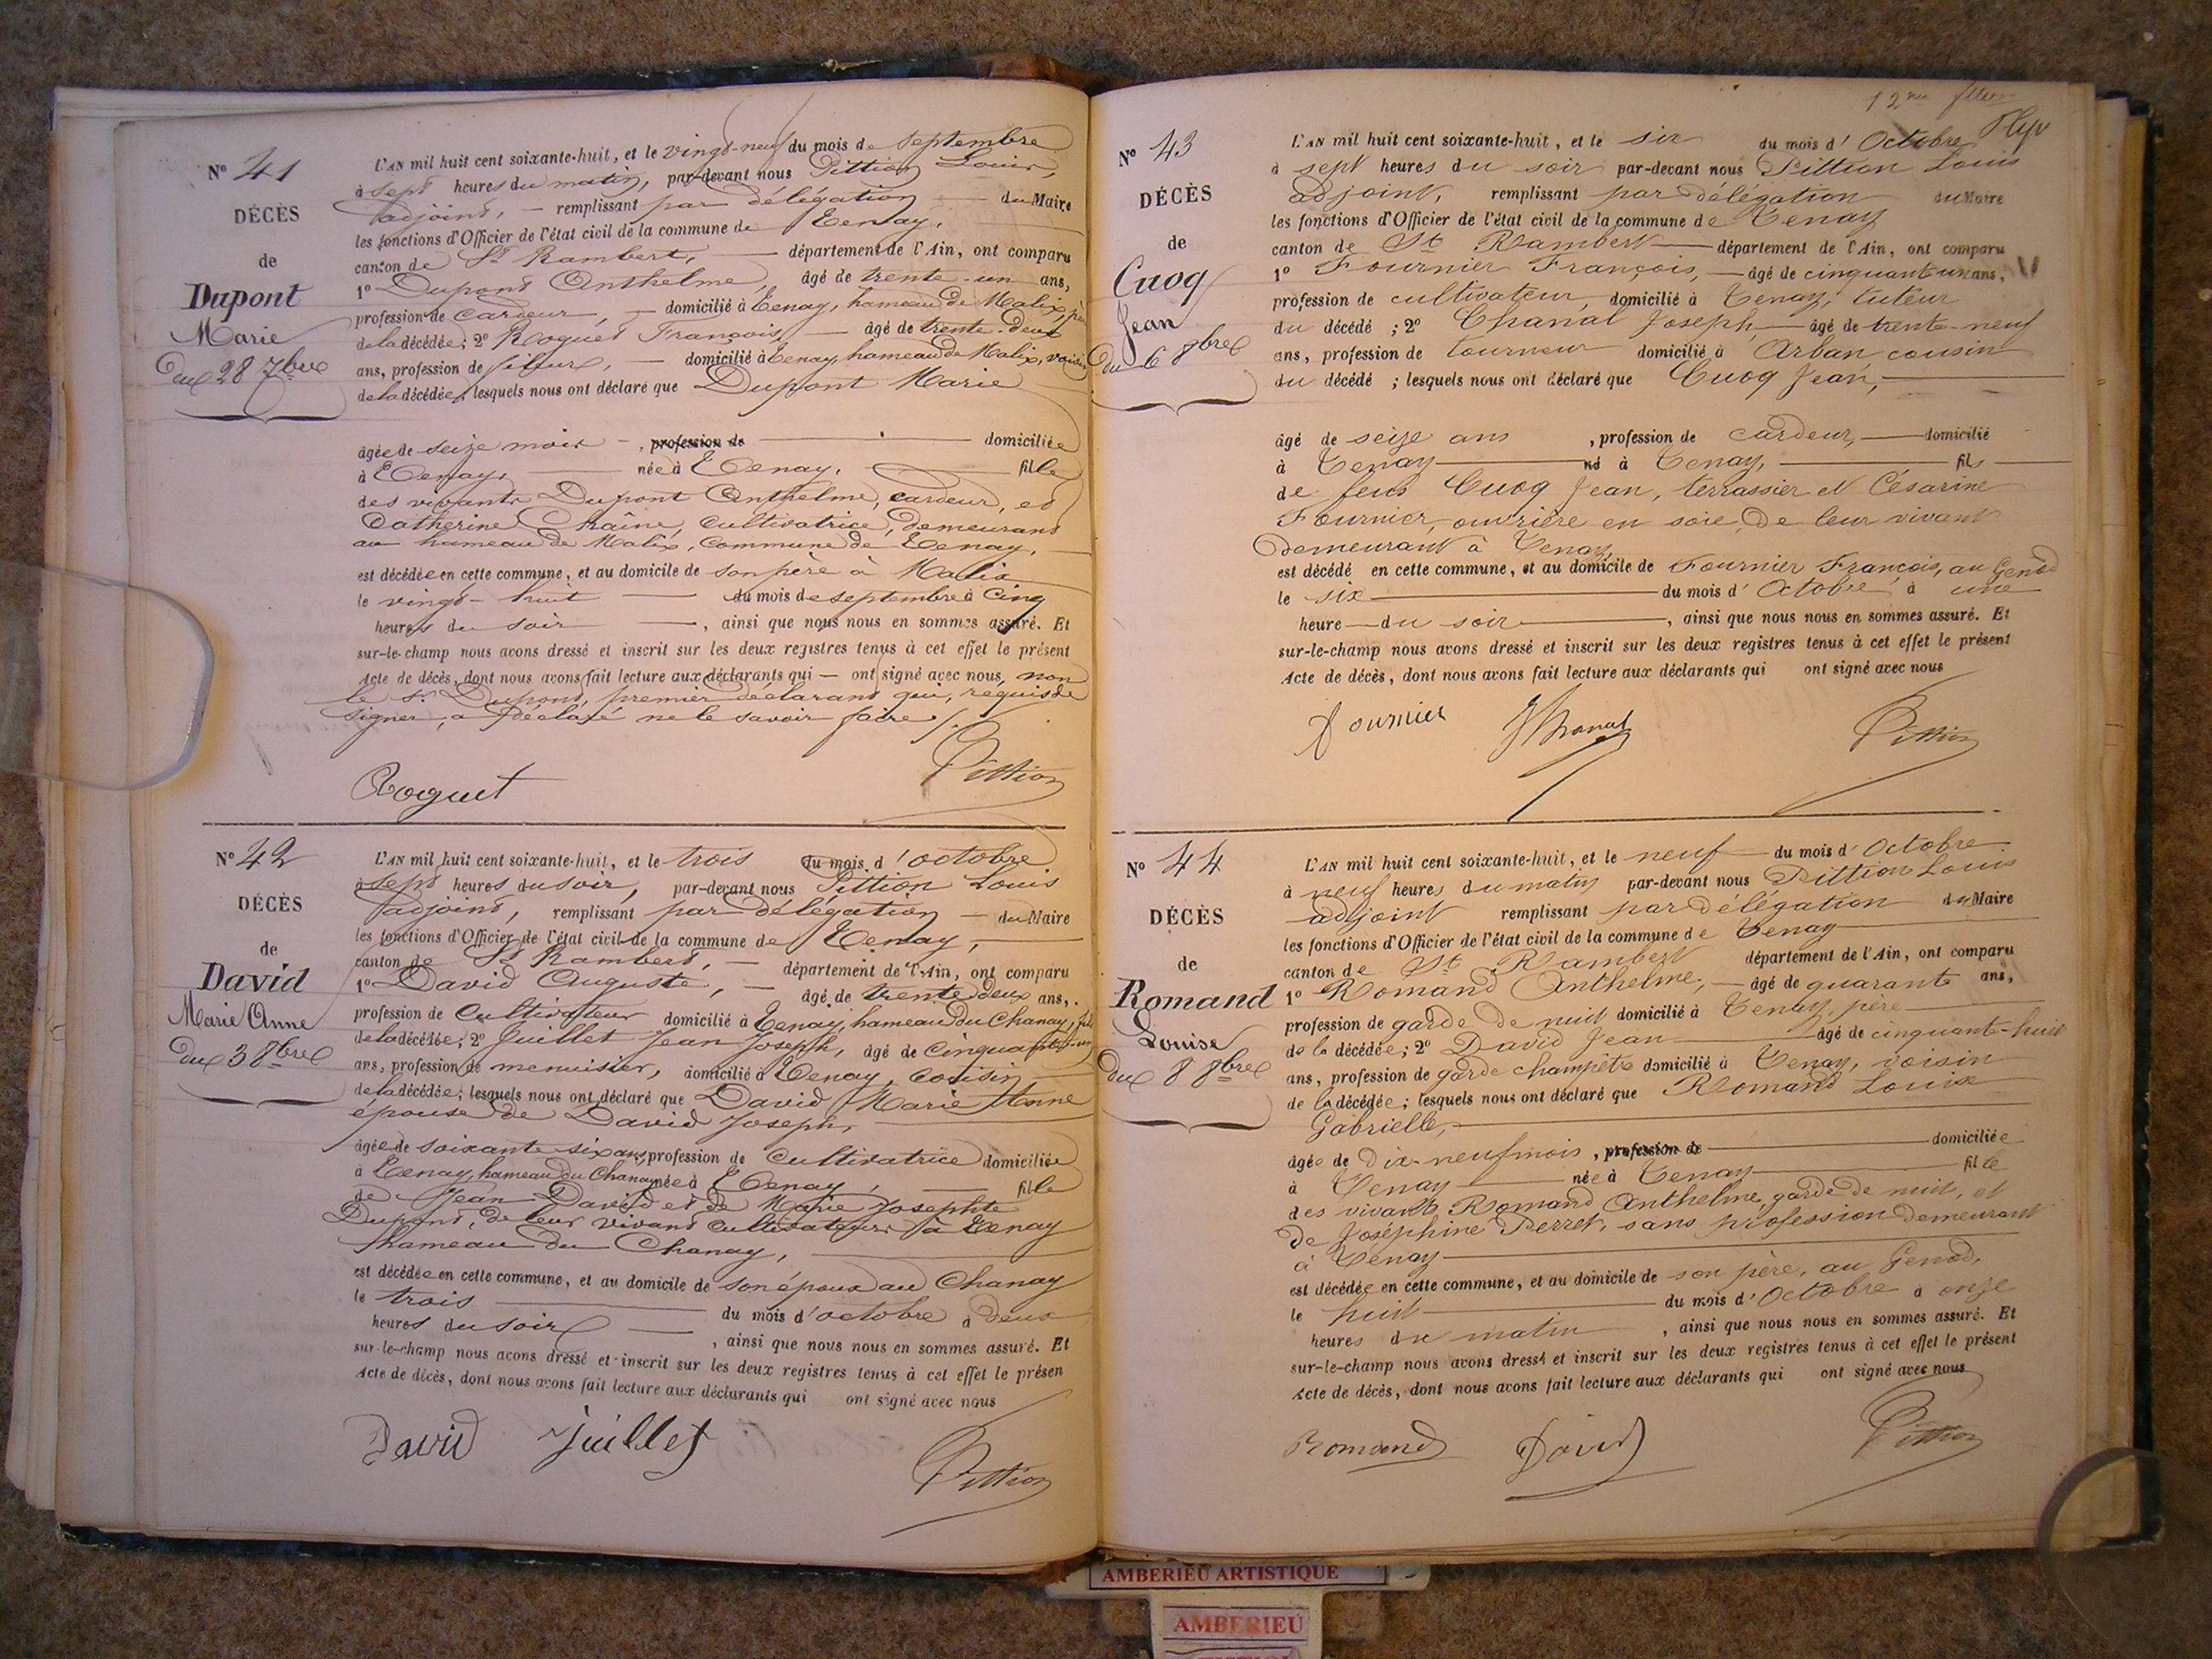 N° 41
DÉCÈS
de
Dupont
Marie
du 28 7bre
L'AN mil huit cent soixante-huit, et le vingt-neuf du mois de septembre
à sept heures du matin, par-devant nous Pittion Louis,
adjoint, — remplissant par délégation — du Maire
les fonctions d'Officier de l'état civil de la commune de Tenay,
canton de St Rambert, — département de l'Ain, ont comparu
1° Dupont Anthelme, âgé de trente-un ans,
profession de cardeur, — domicilié à Tenay, hameau de Malix, père
de la décédée; 2° Roguet François, — âgé de trente-deux
ans, profession de fileur, — domicilié à Tenay, hameau de Malix, voisin
de la décédée, lesquels nous ont déclaré que Dupont Marie
âgée de seize mois —, profession de — domiciliée
à Tenay, — née à Tenay, — fille
des vivants Dupont Anthelme, cardeur, et
Catherine Chaîne, cultivatrice, demeurant
au hameau de Malix, commune de Tenay, —
est décédée en cette commune, et au domicile de son père à Malix
le vingt-huit — du mois de septembre à cinq
heures du soir —, ainsi que nous nous en sommes assuré. Et
sur-le-champ nous avons dressé et inscrit sur les deux registres tenus à cet effet le présent
Acte de décès, dont nous avons fait lecture aux déclarants qui — ont signé avec nous, non
le Sr Dupont, premier déclarant qui, requis de
signer, a déclaré ne le savoir faire ./.
Roguet Pittion
N° 42
DÉCÈS
de
David
Marie Anne
du 3 8bre
L'AN mil huit cent soixante-huit, et le trois du mois d'octobre
à sept heures du soir, par-devant nous Pittion Louis
adjoint, remplissant par délégation — du Maire
les fonctions d'Officier de l'état civil de la commune de Tenay,
canton de St Rambert, — département de l'Ain, ont comparu
1° David Auguste, — âgé de trente deux ans,
profession de cultivateur domicilié à Tenay, hameau du Chanay, fils
de la décédée; 2° Juillet Jean Joseph, âgé de cinquante-un
ans, profession de menuisier, domicilié à Tenay, cousin
de la décédée; lesquels nous ont déclaré que David Marie Anne
épouse de David Joseph,
âgée de soixante six ans, profession de cultivatrice domiciliée
à Tenay, hameau du Chanay née à Tenay, — fille
de Jean David et de Marie Josephte
Dupont, de leur vivant cultivateurs à Tenay
hameau du Chanay, —
est décédée en cette commune, et au domicile de son époux au Chanay
le trois — du mois d'octobre à deux
heures du soir —, ainsi que nous nous en sommes assuré. Et
sur-le-champ nous avons dressé et inscrit sur les deux registres tenus à cet effet le présen
Acte de décès, dont nous avons fait lecture aux déclarants qui ont signé avec nous
David Juillet Pittion
N° 43
DÉCÈS
de
Cuoq
Jean
du 6 8bre
L'AN mil huit cent soixante-huit, et le six du mois d'Octobre
à sept heures du soir par-devant nous Pittion Louis
adjoint, remplissant par délégation du Maire
les fonctions d'Officier de l'état civil de la commune de Tenay
canton de St Rambert — département de l'Ain, ont comparu
1° Fournier François, — âgé de cinquant un ans,
profession de cultivateur, domicilié à Tenay, tuteur
du décédé; 2° Chanal Joseph, — âgé de trente-neuf
ans, profession de tourneur domicilié à Arban cousin
du décédé; lesquels nous ont déclaré que Cuoq Jean, —
âgé de seize ans, profession de cardeur, — domicilié
à Tenay — né à Tenay, — fils —
de feus Cuoq Jean, terrassier et Césarine
Fournier, ouvrière en soie, de leur vivant
demeurant à Tenay
est décédé en cette commune, et au domicile de Fournier François, au Genod
le six — du mois d'Octobre à une
heure — du soir —, ainsi que nous nous en sommes assuré. Et
sur-le-champ nous avons dressé et inscrit sur les deux registres tenus à cet effet le présent
Acte de décès, dont nous avons fait lecture aux déclarants qui ont signé avec nous
Fournier JChanal Pittion
N° 44
DÉCÈS
de
Romand
Louise
du 8 8bre
L'AN mil huit cent soixante-huit, et le neuf — du mois d'Octobre
à neuf heures du matin par-devant nous Pittion Louis
adjoint remplissant par délégation du Maire
les fonctions d'Officier de l'état civil de la commune de Tenay
canton de St Rambert département de l'Ain, ont comparu
1° Romand Anthelme, — âgé de quarante ans,
profession de garde de nuit domicilié à Tenay, père
de la décédée; 2° David Jean — âgé de cinquante-huit
ans, profession de garde champêtre domicilié à Tenay, voisin
de la décédée; lesquels nous ont déclaré que Romand Louise
Gabrielle, —
âgée de dix-neuf mois, profession de — domiciliée
à Tenay — née à Tenay — fille
des vivants Romand Anthelme, garde de nuit, et
de Joséphine Perret, sans profession demeurant
à Tenay —
est décédée en cette commune, et au domicile de son père, au Genod,
le huit — du mois d'Octobre à onze
heures du matin, ainsi que nous nous en sommes assuré. Et
sur-le-champ nous avons dressé et inscrit sur les deux registres tenus à cet effet le présent
Acte de décès, dont nous avons fait lecture aux déclarants qui ont signé avec nous
Romand David Pittion
AMBERIEU ARTISTIQUE
AMBERIEU